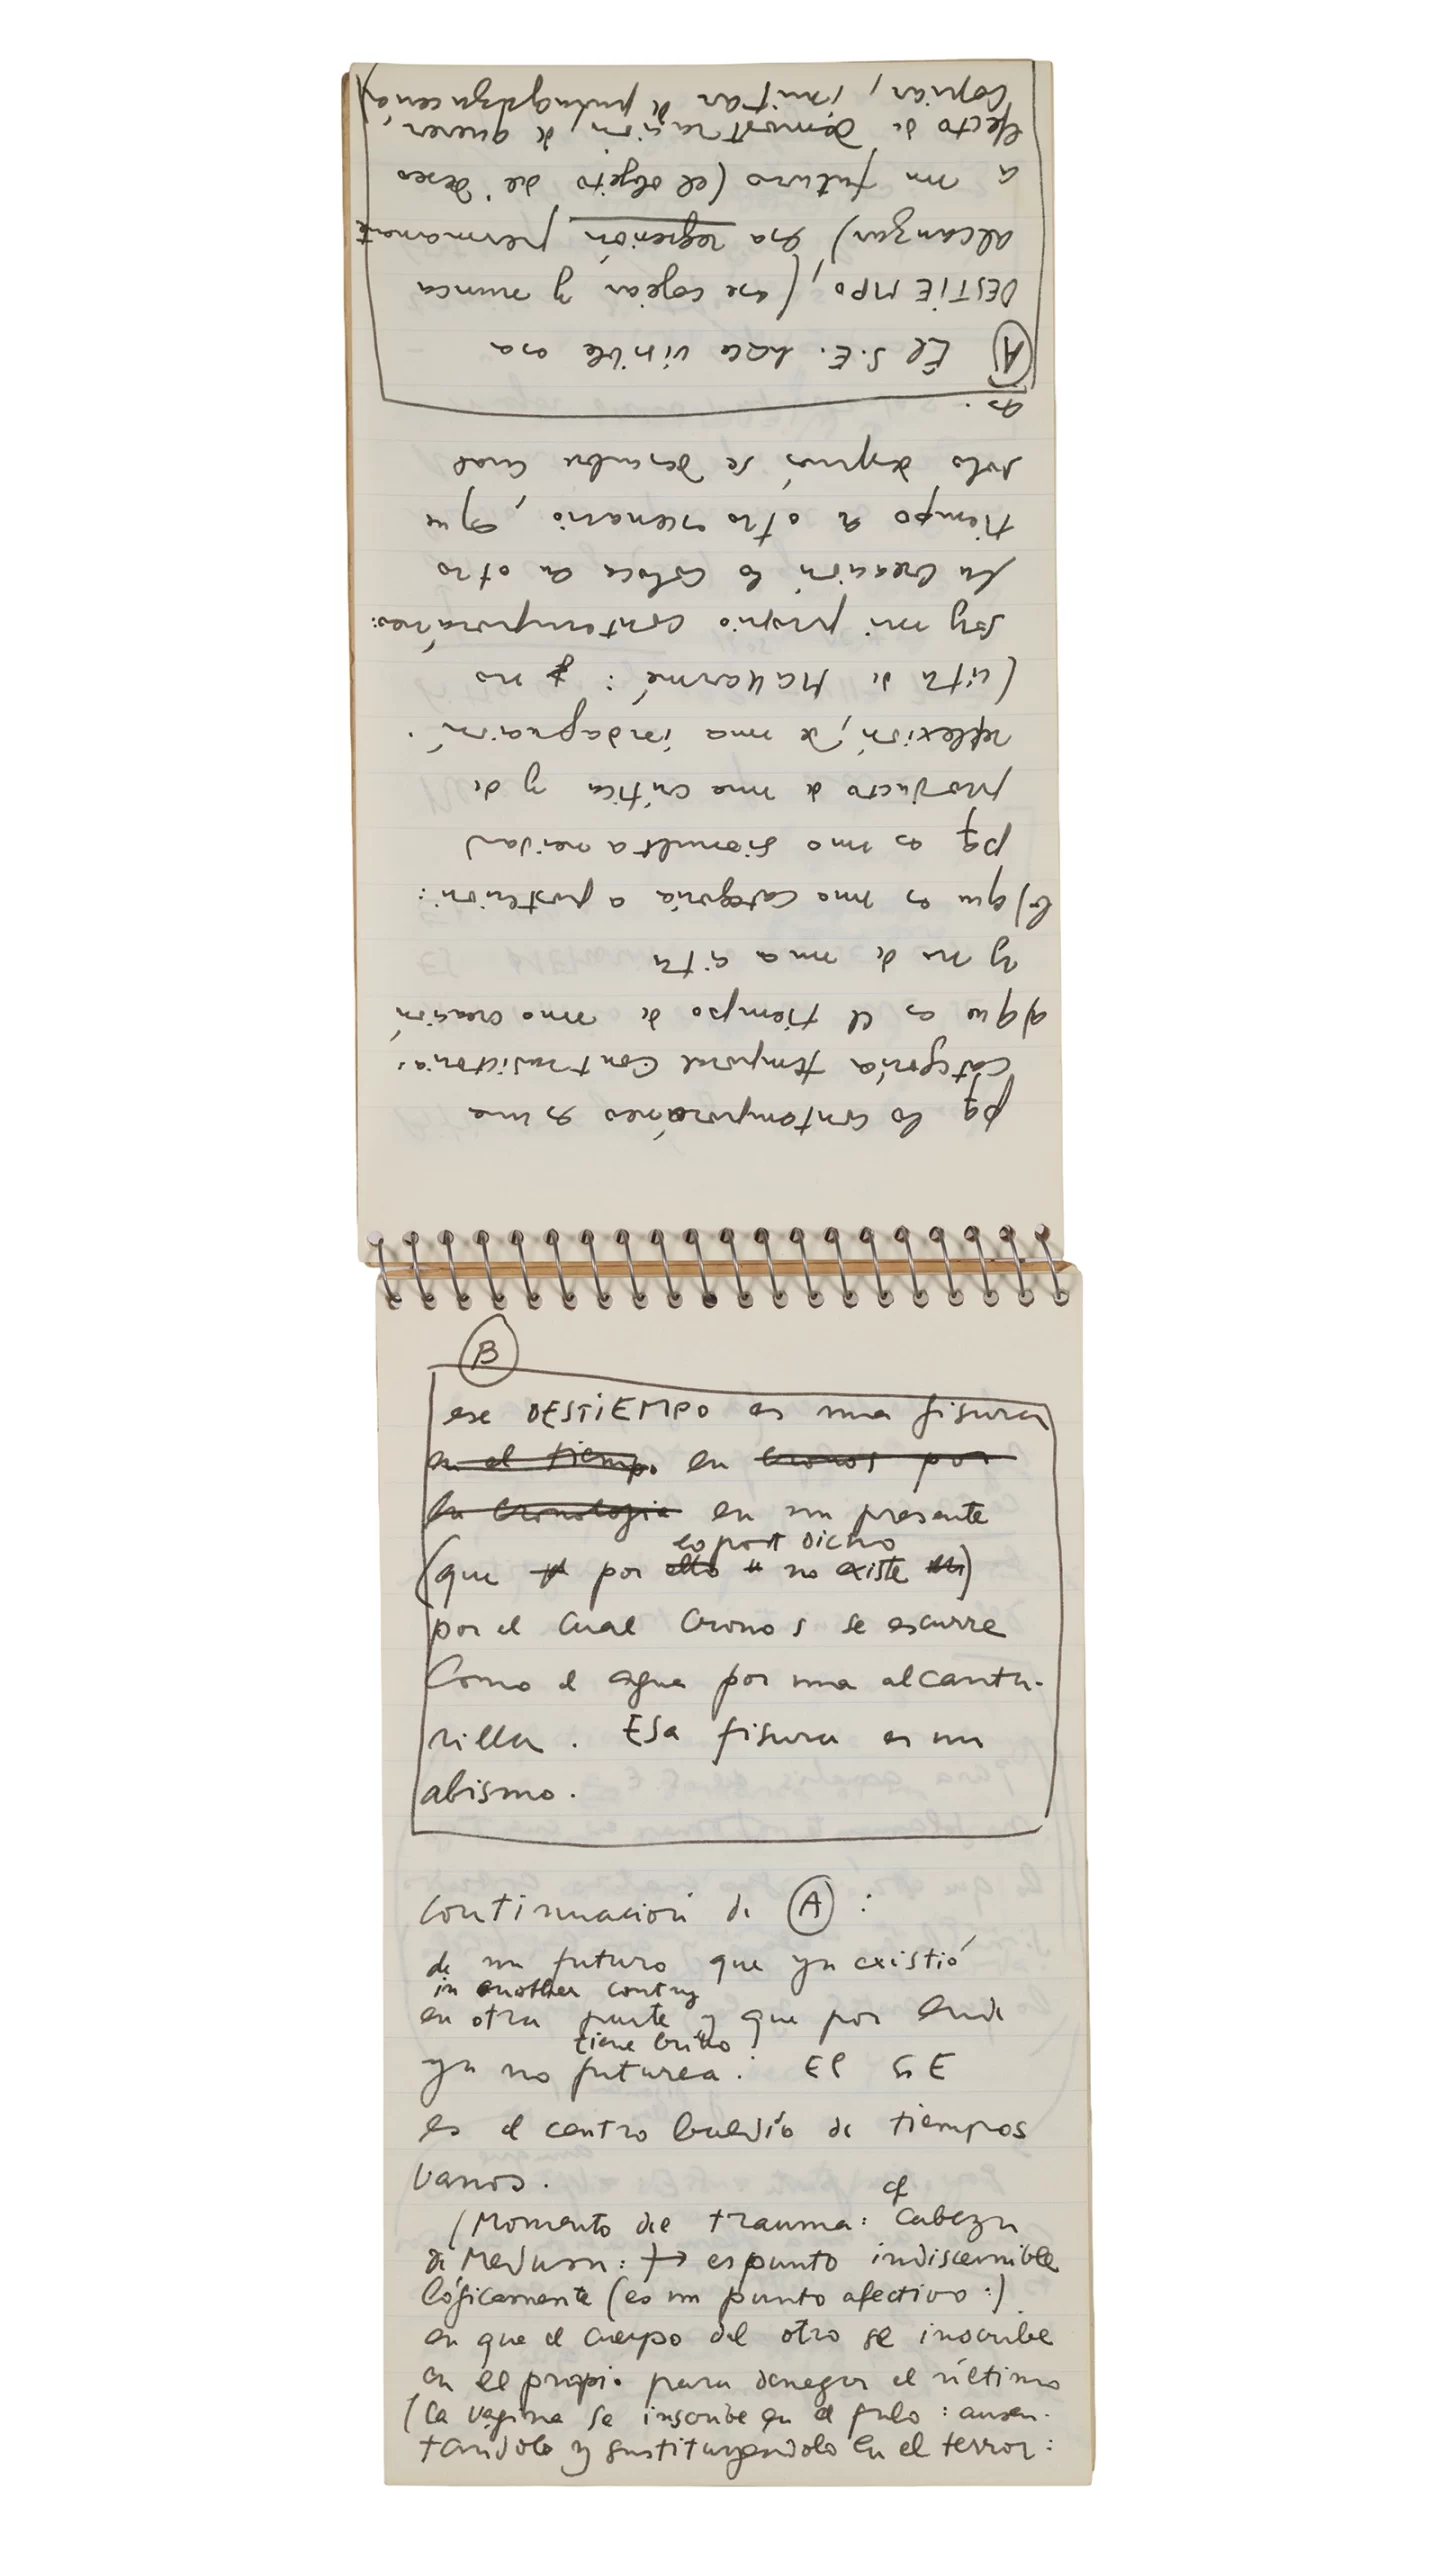 pq lo contemporáneo es una
categoría temporal contradictoria:
a) que es el tiempo de una creación
y no de una cita
b) que es una categoría a posteriori:
pq es una simultaneidad
producto de una crítica y de
reflexión, de una indagación.
(cita de Mallarmé: no
soy mi propio contemporáneo:
su creación lo coloca en otro
tiempo en otro scenario, que
solo después se descubre cual
es.
(A) El S.E. hace visible esa
DESTIEMPO, (ese cojear y nunca
alcanzar) esa regresión permanente
a un futuro (el objeto del deseo
efecto de demostración, de querer,
copiar, imitar de
(B)
ese DESTIEMPO es una fisura
en el tiempo en cronos por
la cronología en un presente
lo post dicho
(que por ello no existe)
por el cual Cronos se escurre
Como el agua por una alcanta-
rilla. Esa fisura es un
abismo.
continuación de (A) :
de un futuro que ya existió
in another contry
en otra parte y que por ende
tiene brillo
ya no futurea. El S E
es el centro baldío de tiempos
vanos.
cf
(Momento del trauma: Cabeza
de Medusa: es punto indiscernible
lógicamente (es un punto afectivo:)
en que el cuerpo del otro se inscribe
en el propio para denegar el último
(la vagina se inscribe en el falo: ausen-
tandolo y sustituyendolo en el terror: